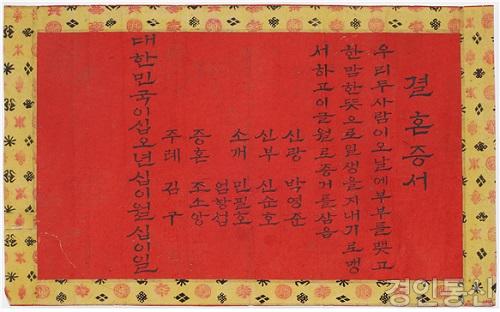 결혼증서
우리두사람이오날에부부를맺고
한말한뜻으로일생을지내기로맹
서하고이글월로증거를삼음
신랑 박영준
신부 신순호
소개 민필호
엄항섭
증혼 조소앙
주례 김구
대한민국이십오년십이월십이일
경인통신